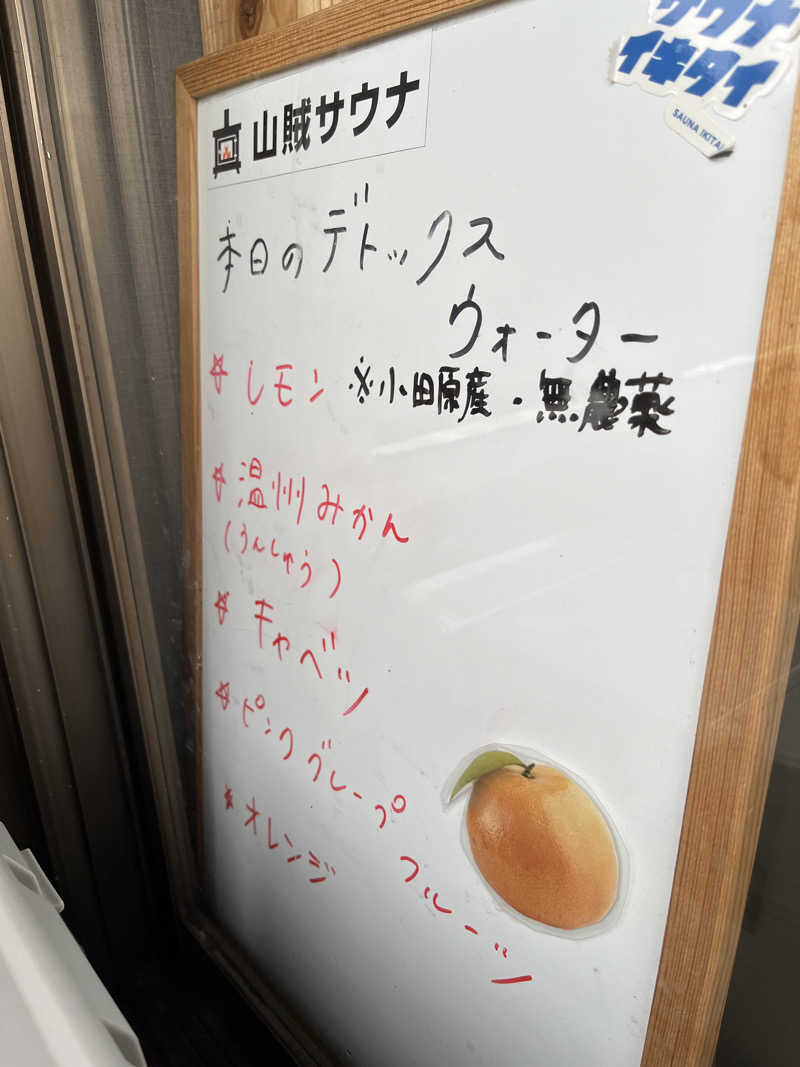 サウナ
イキタイ
SAUNA IKITAI
山賊サウナ
本日のデトックス
ウォーター
☆ レモン ※小田原産・無農薬
☆ 温州みかん
(うんしゅう)
☆ キャベツ
☆ ピンクグレープ
フルーツ
★ オレンジ